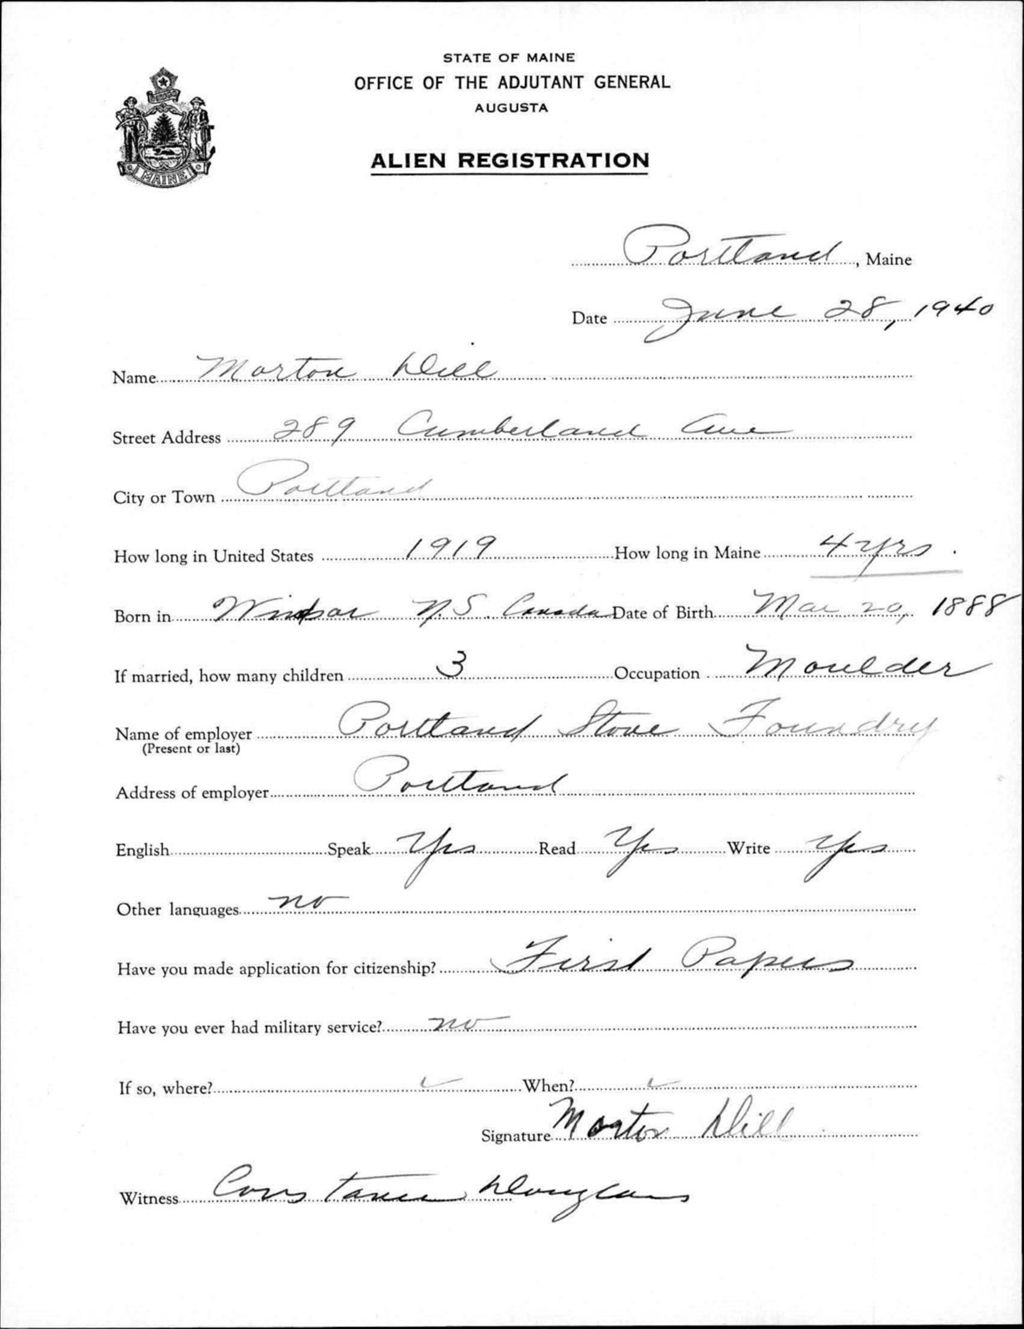 STATE OF MAINE
OFFICE OF THE ADJUTANT GENERAL
AUGUSTA
ALIEN REGISTRATION
MAINE
Portland, Maine
Date June 28, 1940
Name Morton Dill
Street Address 289 Cumberland Ave
City or Town Portland
How long in United States 1919 How long in Maine 4 yrs.
Born in Windsor N.S. Canada Date of Birth Mar 20, 1888
If married, how many children 3 Occupation Moulder
Name of employer Portland Stove Foundry
(Present or last)
Address of employer Portland
English Speak Yes Read Yes Write Yes
Other languages no
Have you made application for citizenship? First Papers
Have you ever had military service? no
If so, where? ✓ When? ✓
Signature Morton Dill
Witness Constance Douglass